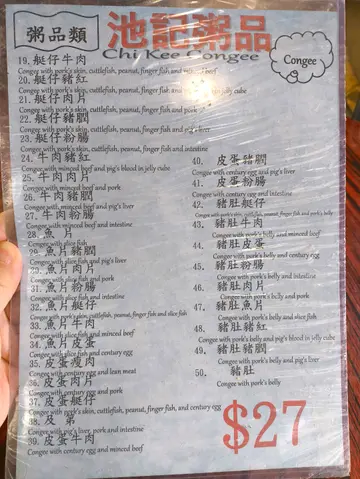 粥品類
池記粥品
Chi Kee Congee
Congee
19. 艇仔牛肉
Congee with pork's skin, cuttlefish, peanut, finger fish and minced beef
20. 艇仔豬紅
Congee with pork's skin, cuttlefish, peanut, finger fish and in jelly cube
21. 艇仔肉片
Congee with pork's skin, cuttlefish, peanut, finger fish and pork
22. 艇仔豬膶
Congee with pork's skin, cuttlefish, peanut, finger fish and pig's liver
23. 艇仔粉腸
Congee with pork's skin, cuttlefish, peanut, finger fish and intestine
24. 牛肉豬紅
Congee with minced beef and pig's blood in jelly cube
25. 牛肉肉片
Congee with minced beef and pork
26. 牛肉豬膶
Congee with minced beef and pig's liver
27. 牛肉粉腸
Congee with minced beef and intestine
28. 魚 片
Congee with slice fish
29. 魚片豬膶
Congee with slice fish and pig's liver
30. 魚片肉片
Congee with slice fish and pork
31. 魚片粉腸
Congee with slice fish and intestine
32. 魚片艇仔
Congee with pork's skin, cuttlefish, peanut, finger fish and slice fish
33. 魚片牛肉
Congee with slice fish and minced beef
34. 魚片皮蛋
Congee with slice fish and century egg
35. 皮蛋瘦肉
Congee with century egg and lean meat
36. 皮蛋肉片
Congee with century egg and pork
37. 皮蛋艇仔
Congee with pork's skin, cuttlefish, peanut, finger fish, and century egg
38. 及 第
Congee with pig's liver, pork and intestine
39. 皮蛋牛肉
Congee with century egg and minced beef
40. 皮蛋豬膶
Congee with century egg and pig's liver
41. 皮蛋粉腸
Congee with century egg and intestine
42. 豬肚艇仔
Congee with pork's skin, cuttlefish, peanut, finger fish and pork's belly
43. 豬肚牛肉
Congee with pork's belly and minced beef
44. 豬肚皮蛋
Congee with pork's belly and century egg
45. 豬肚粉腸
Congee with pork's belly and intestine
46. 豬肚肉片
Congee with pork's belly and pork
47. 豬肚魚片
Congee with pork's belly and slice fish
48. 豬肚豬紅
Congee with pork's belly and pig's blood in jelly cube
49. 豬肚豬膶
Congee with pork's belly and pig's liver
50. 豬肚
Congee with pork's belly
$27